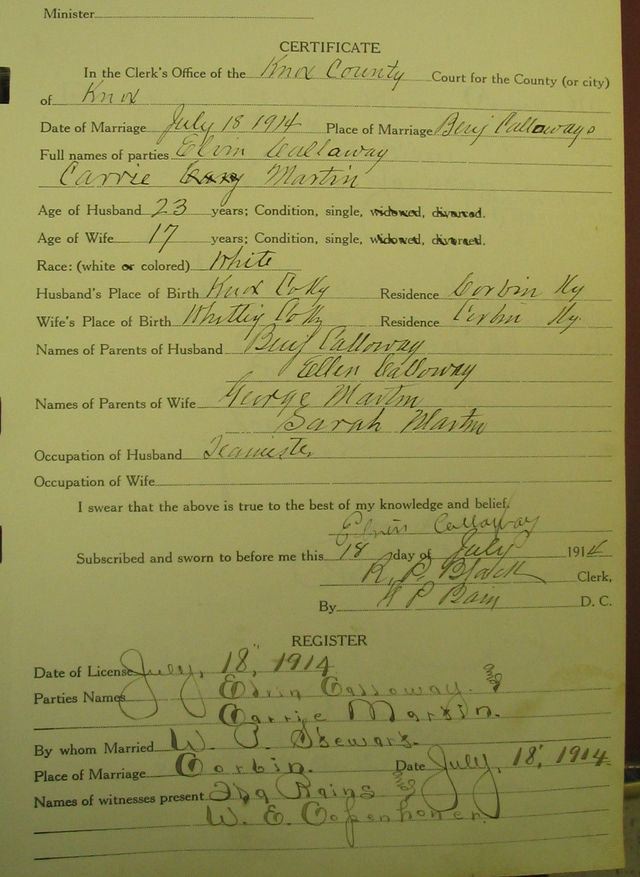 Minister
CERTIFICATE
In the Clerk's Office of the Knox County Court for the County (or city)
of Knox
Date of Marriage July 18 1914 Place of Marriage Benj Calloways
Full names of parties Elvin Callaway
Carrie Martin
Age of Husband 23 years; Condition, single, widowed, divorced.
Age of Wife 17 years; Condition, single, widowed, divorced.
Race: (white or colored) White
Husband's Place of Birth Knox Co Ky Residence Corbin Ky
Wife's Place of Birth Whitley Co Ky Residence Corbin Ky.
Names of Parents of Husband Benj Calloway
Ellen Calloway
Names of Parents of Wife George Martin
Sarah Martin
Occupation of Husband Teamister
Occupation of Wife
I swear that the above is true to the best of my knowledge and belief.
Elvin Calloway
Subscribed and sworn to before me this 18 day of July 1914
R. P. Black Clerk,
By P Bain D. C.
REGISTER
Date of License July, 18, 1914
Parties Names Elvin Calloway and
Carrie Martin.
By whom Married W. Stewart.
Place of Marriage Corbin. Date July, 18, 1914
Names of witnesses present Rains and
W. E. Copenhoner.